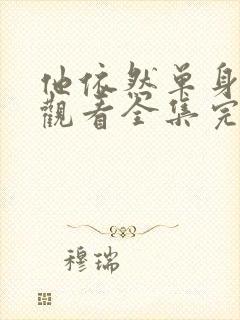 他依然单身
觀看全集完
穆瑞